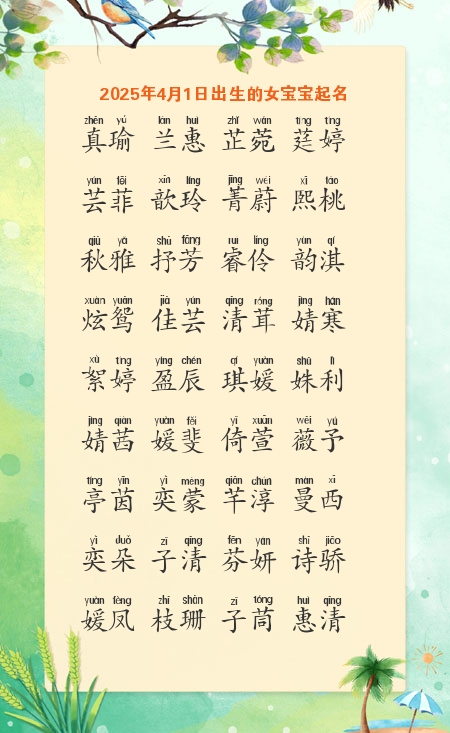 2025年4月1日出生的女宝宝起名
zhēn yú lán huì zhǐ wǎn tíng tíng
真瑜 兰惠 芷菀 莛婷
yún fēi xīn líng jīng wèi xī táo
芸菲 歆玲 菁蔚 熙桃
qiū yǎ shū fāng ruì líng yùn qí
秋雅 抒芳 睿伶 韵淇
xuàn yuān jiā yún qīng róng jìng hán
炫鸳 佳芸 清茸 婧寒
xù tíng yíng chén qí yuàn shū lì
絮婷 盈辰 琪媛 姝利
jìng qiàn yuàn fěi yǐ xuān wēi yǔ
婧茜 媛斐 倚萱 薇予
tíng yīn yì méng qiān chún màn xī
亭茵 奕蒙 芊淳 曼西
yì duǒ zǐ qīng fēn yán shī jiāo
奕朵 子清 芬妍 诗骄
yuàn fèng zhī shān zǐ tóng huì qīng
媛凤 枝珊 子茼 惠清